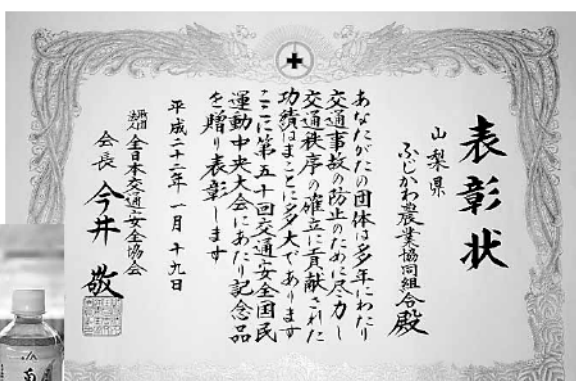 表彰状
山梨県
ふじかわ農業協同組合殿
あなたがたの団体は多年にわたり
交通事故の防止のために尽力し
交通秩序の確立に貢献された
功績はまことに多大であります
ここに第五十回交通安全国民
運動中央大会にあたり記念品
を贈り表彰します
平成二十二年一月十九日
財団法人 全日本交通安全協会
会長 今井 敬